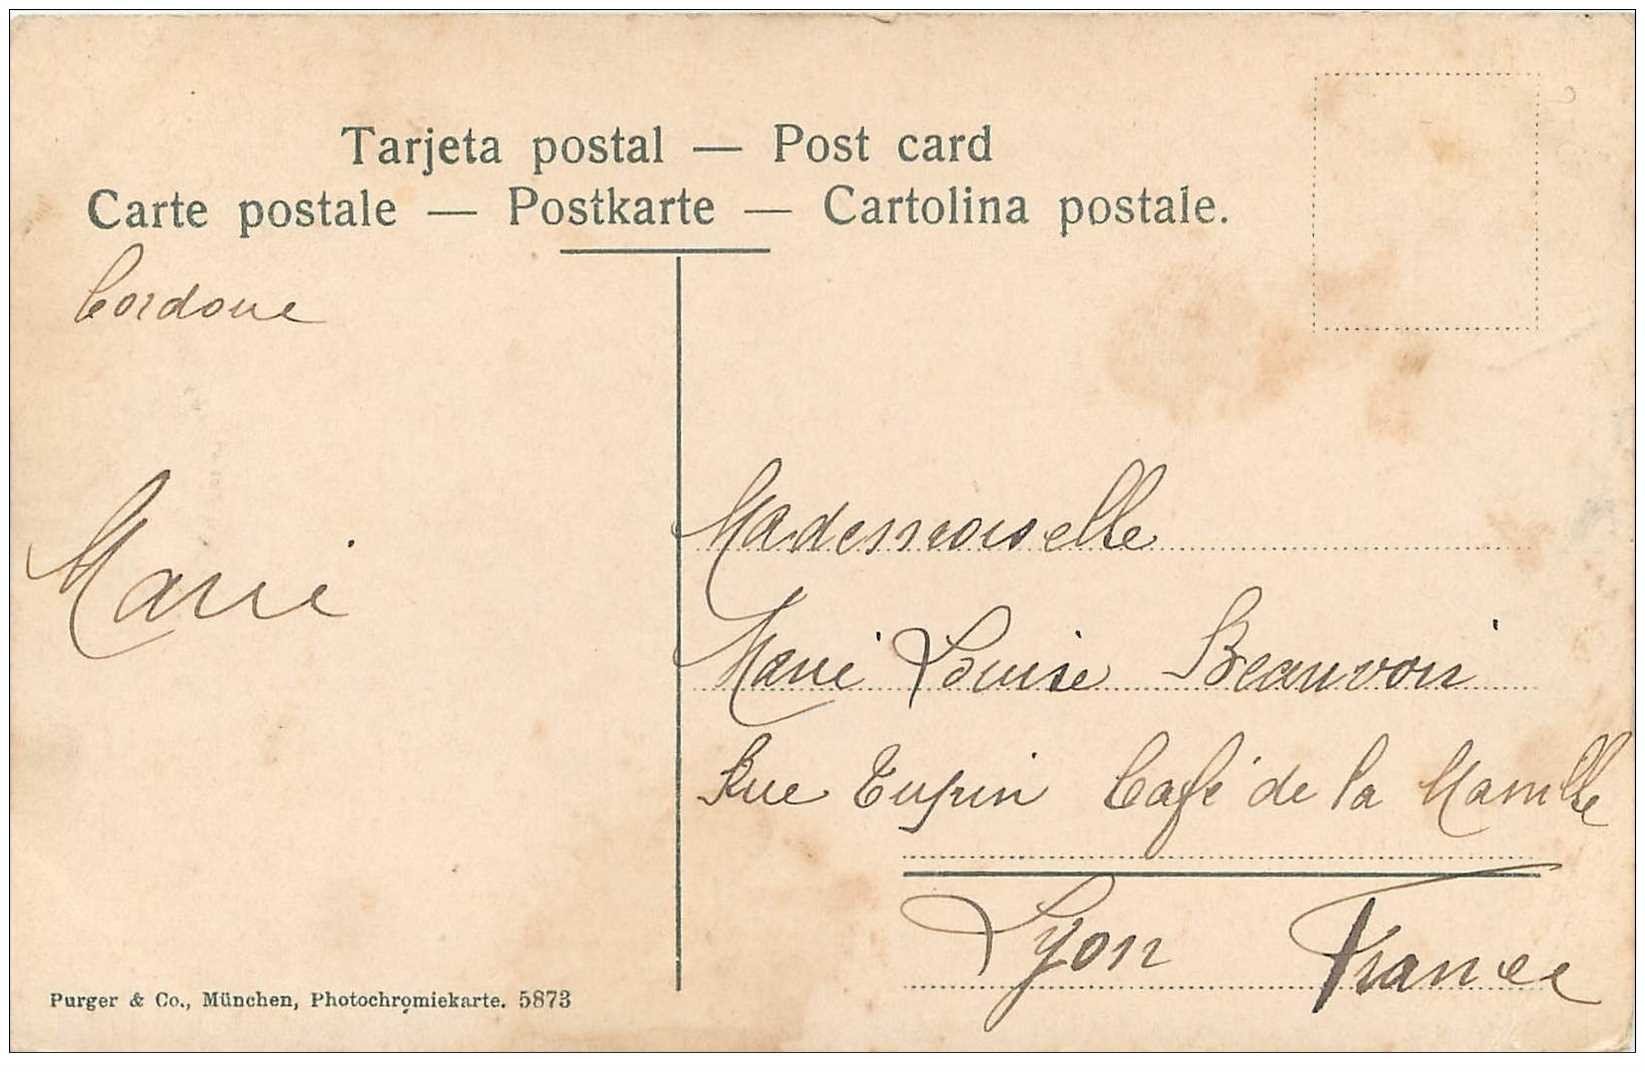 Tarjeta postal — Post card
Carte postale — Postkarte — Cartolina postale.
Cordoue
Marie
Mademoiselle
Marie Louise Beauvoir
Rue Tupin Café de la Manille
Lyon France
Purger & Co., München, Photochromiekarte. 5873